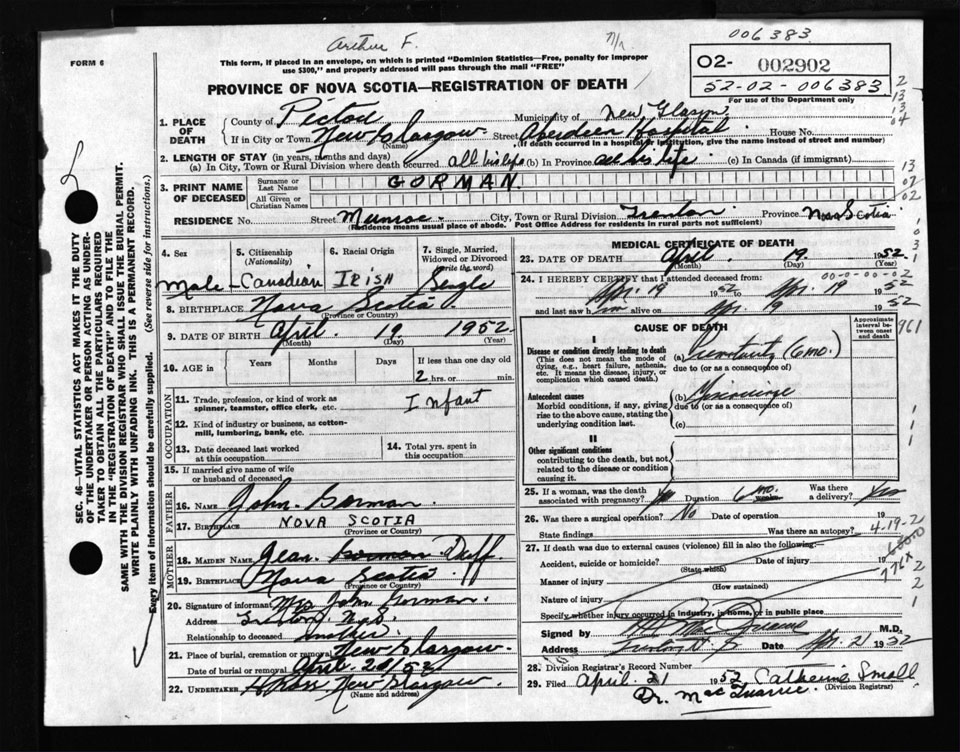 Arthur F.
006383
FORM 6
This form, if placed in an envelope, on which is printed "Dominion Statistics—Free, penalty for improper
use $300," and properly addressed will pass through the mail "FREE"
02- 002902
52-02-006383
For use of the Department only
PROVINCE OF NOVA SCOTIA—REGISTRATION OF DEATH
1. PLACE OF DEATH
County of Pictou Municipality of New Glasgow
If in City or Town New Glasgow Street Aberdeen Hospital House No.
(Name) (If death occurred in a hospital or institution, give the name instead of street and number)
2. LENGTH OF STAY (in years, months and days)
(a) In City, Town or Rural Division where death occurred all his life (b) In Province all his life (c) In Canada (if immigrant)
3. PRINT NAME OF DECEASED
Surname or Last Name GORMAN
All Given or Christian Names
RESIDENCE No. Street Munroe City, Town or Rural Division Trenton Province Nova Scotia
(Residence means usual place of abode. Post Office Address for residents in rural parts not sufficient)
4. Sex Male
5. Citizenship (Nationality) Canadian
6. Racial Origin IRISH
7. Single, Married, Widowed or Divorced (write the word) Single
8. BIRTHPLACE Nova Scotia
(Province or Country)
9. DATE OF BIRTH April 19 1952
(Month) (Day) (Year)
10. AGE in Years Months Days If less than one day old
2 hrs. or min.
OCCUPATION
11. Trade, profession, or kind of work as spinner, teamster, office clerk, etc. Infant
12. Kind of industry or business, as cotton-mill, lumbering, bank, etc.
13. Date deceased last worked at this occupation
14. Total yrs. spent in this occupation
15. If married give name of wife or husband of deceased
FATHER
16. NAME John Gorman
17. BIRTHPLACE NOVA SCOTIA
(Province or Country)
MOTHER
18. MAIDEN NAME Jean Gorman Duff
19. BIRTHPLACE Nova Scotia
(Province or Country)
20. Signature of informant Mrs John Gorman
Address Trenton, N.S.
Relationship to deceased mother
21. Place of burial, cremation or removal New Glasgow
Date of burial or removal April 20/52
22. UNDERTAKER H Ross New Glasgow
(Name and address)
MEDICAL CERTIFICATE OF DEATH
23. DATE OF DEATH April 19 1952
(Month) (Day) (Year)
24. I HEREBY CERTIFY that I attended deceased from: 00-0-00-02
Apr. 19 1952 to Apr. 19 1952
and last saw him alive on Apr. 19 1952
CAUSE OF DEATH
Approximate interval between onset and death
I
Disease or condition directly leading to death
(This does not mean the mode of dying, e.g., heart failure, asthenia, etc. It means the disease, injury, or complication which caused death.)
(a) Prematurity (6 mo.)
due to (or as a consequence of)
Antecedent causes
Morbid conditions, if any, giving rise to the above cause, stating the underlying condition last.
(b) Miscarriage
due to (or as a consequence of)
(c)
II
Other significant conditions
contributing to the death, but not related to the disease or condition causing it.
25. If a woman, was the death associated with pregnancy? Yes Duration 6 mo. weeks Was there a delivery? Yes
26. Was there a surgical operation? No Date of operation 19
State findings Was there an autopsy? 4-19-2
27. If death was due to external causes (violence) fill in also the following:—
Accident, suicide or homicide? Date of injury 19
(State which)
Manner of injury
(How sustained)
Nature of injury
776X
Specify whether injury occurred in industry, in home, or in public place
Signed by M.D.
Address Trenton N S Date Apr. 21 1952
28. Division Registrar's Record Number
29. Filed April 21 1952 Catherine Small
(Division Registrar)
SEC. 46—VITAL STATISTICS ACT MAKES IT THE DUTY
OF THE UNDERTAKER OR PERSON ACTING AS UNDER-
TAKER TO OBTAIN ALL THE PARTICULARS REQUIRED
IN THE "REGISTRATION OF DEATH" AND TO FILE THE
SAME WITH THE DIVISION REGISTRAR WHO SHALL ISSUE THE BURIAL PERMIT.
WRITE PLAINLY WITH UNFADING INK. THIS IS A PERMANENT RECORD.
Every item of information should be carefully supplied. (See reverse side for instructions.)